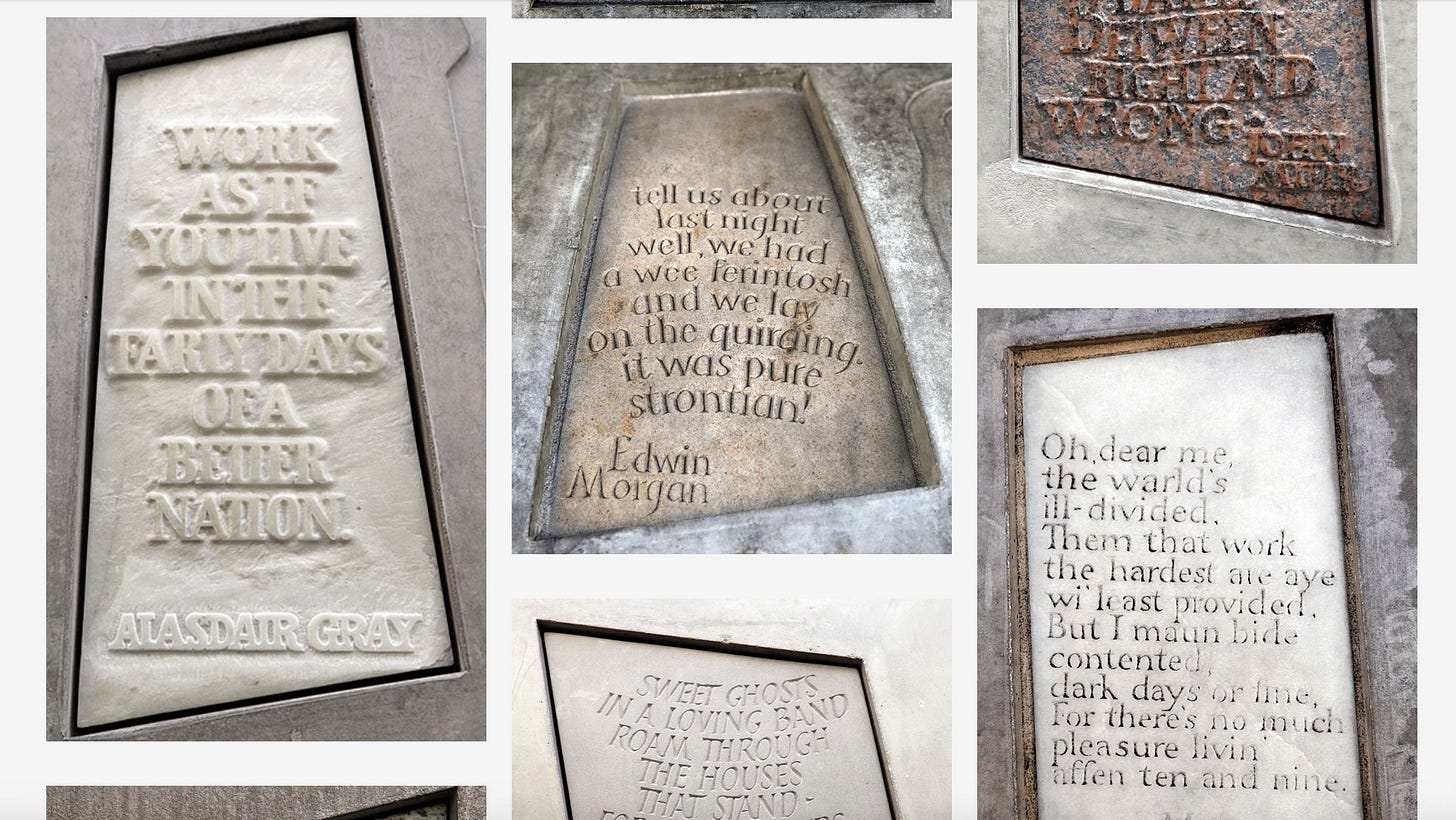 WORK
AS IF
YOU LIVE
IN THE
EARLY DAYS
OF A
BETTER
NATION.
ALASDAIR GRAY
tell us about
last night
well, we had
a wee ferintosh
and we lay
on the quiraing.
it was pure
strontian!
Edwin
Morgan
SWEET GHOSTS
IN A LOVING BAND
ROAM THROUGH
THE HOUSES
THAT STAND -
BETWEEN
RIGHT AND
WRONG.
JOHN
Oh, dear me,
the warld's
ill-divided.
Them that work
the hardest are aye
wi' least provided.
But I maun bide
contented,
dark days or fine,
For there's no much
pleasure livin'
affen ten and nine.